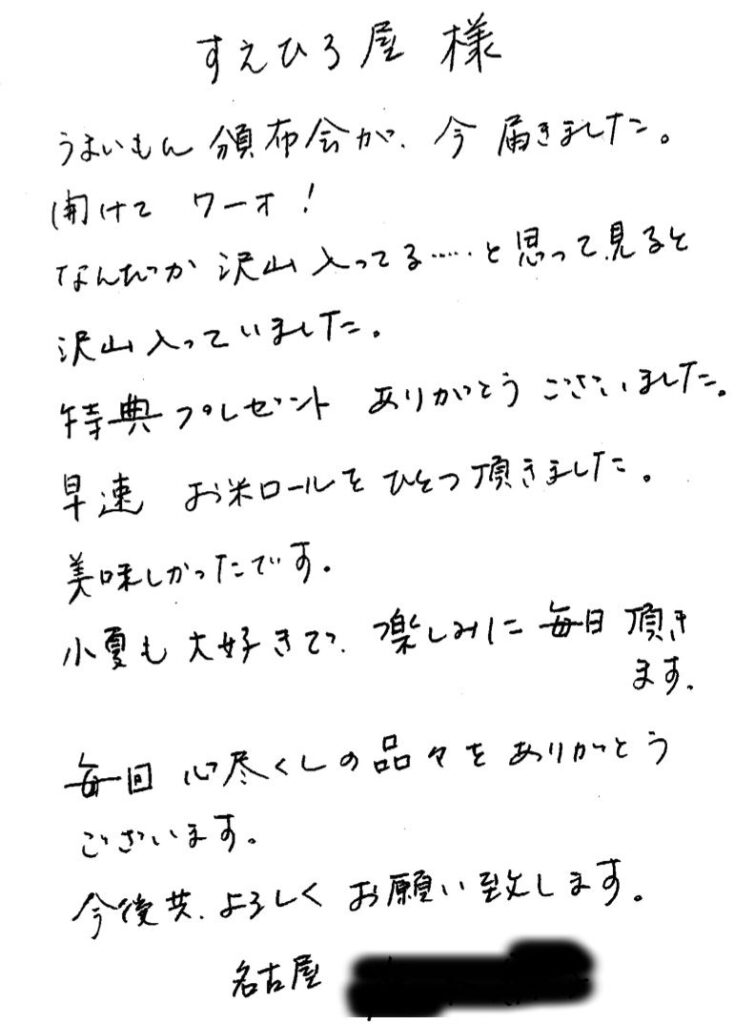 すえひろ屋 様
うまいもん 頒布会が、今 届きました。
開けて ワーオ!
なんだか 沢山 入ってる……と思って、見ると
沢山入っていました。
特典プレゼント ありがとう ございました。
早速 お米ロールを ひとつ 頂きました。
美味しかったです。
小夏も 大好きで、楽しみに 毎日 頂き
ます。
毎回 心尽くしの 品々を ありがとう
ございます。
今後共、よろしく お願い致します。
名古屋